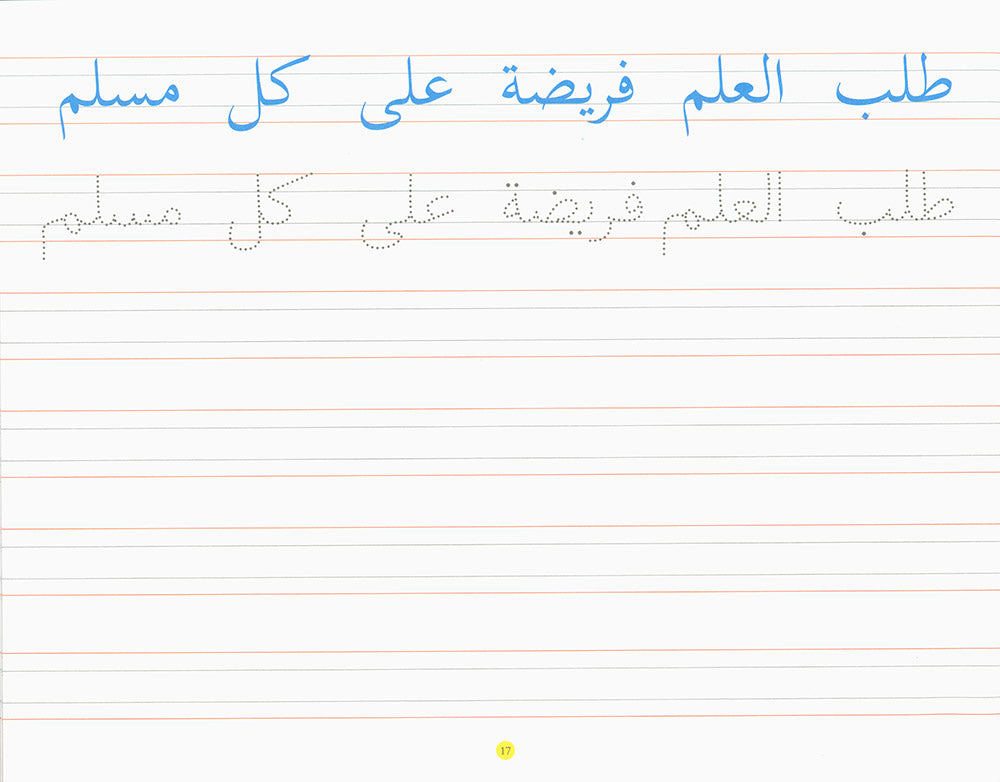 طلب العلم فريضة على كل مسلم
طلب العلم فريضة على كل مسلم
17